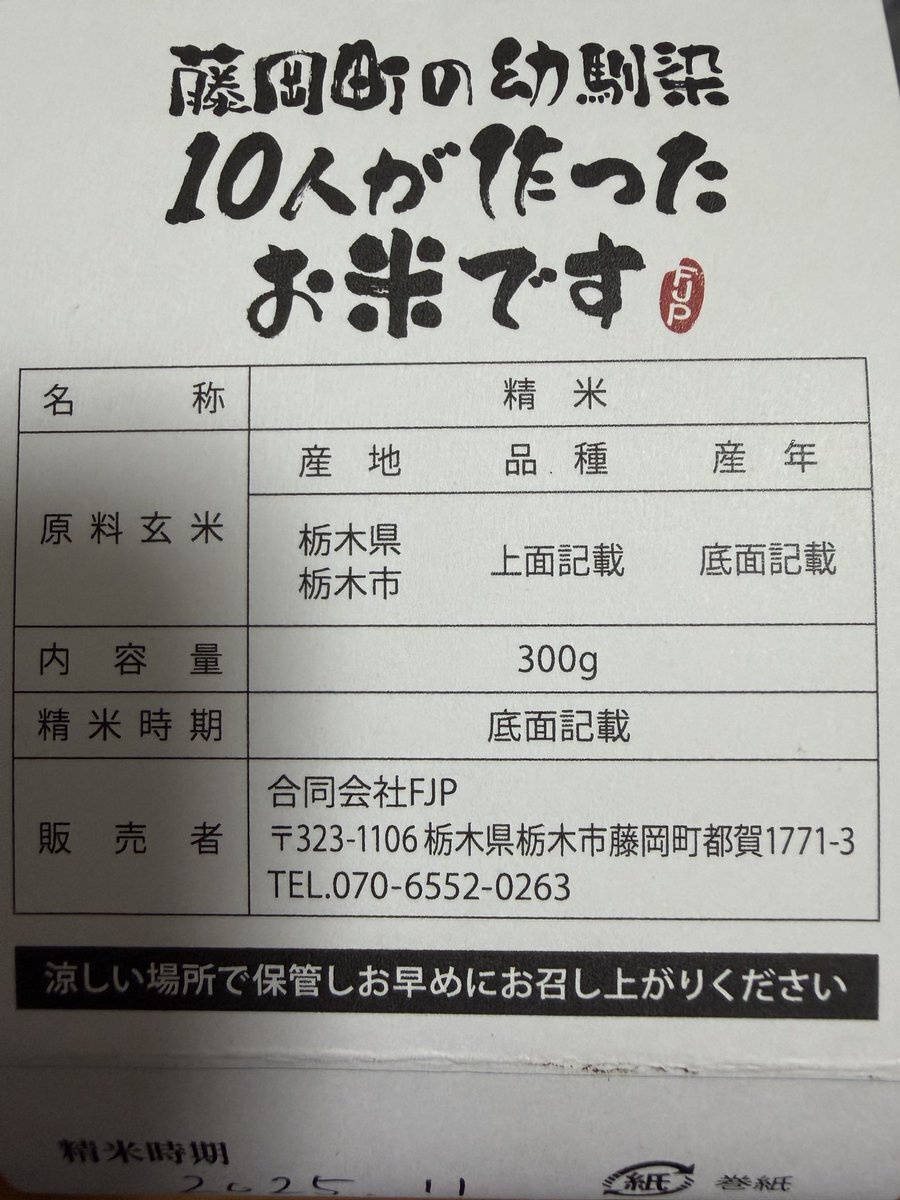 藤岡町の幼馴染
10人が作った
お米です FJP
名称 精米
原料玄米 産地 品種 産年
栃木県 上面記載 底面記載
栃木市
内容量 300g
精米時期 底面記載
販売者 合同会社FJP
〒323-1106 栃木県栃木市藤岡町都賀1771-3
TEL.070-6552-0263
涼しい場所で保管しお早めにお召し上がりください
精米時期
2025.11 紙 巻紙